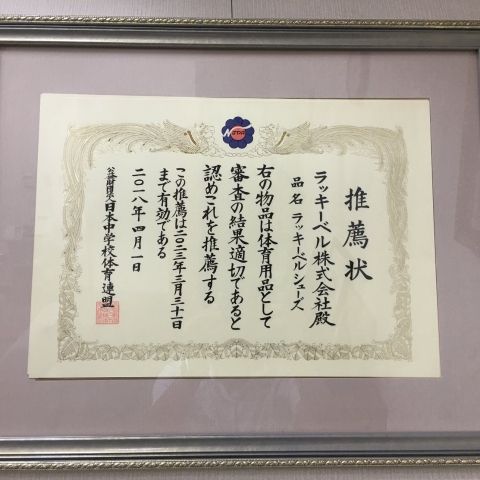 推薦状
ラッキーベル株式会社殿
品名 ラッキーベルシューズ
右の物品は体育用品として
審査の結果適切であると
認めこれを推薦する
この推薦は二〇二三年三月三十日
まで有効である
二〇一八年四月一日
公益財団法人日本中学校体育連盟